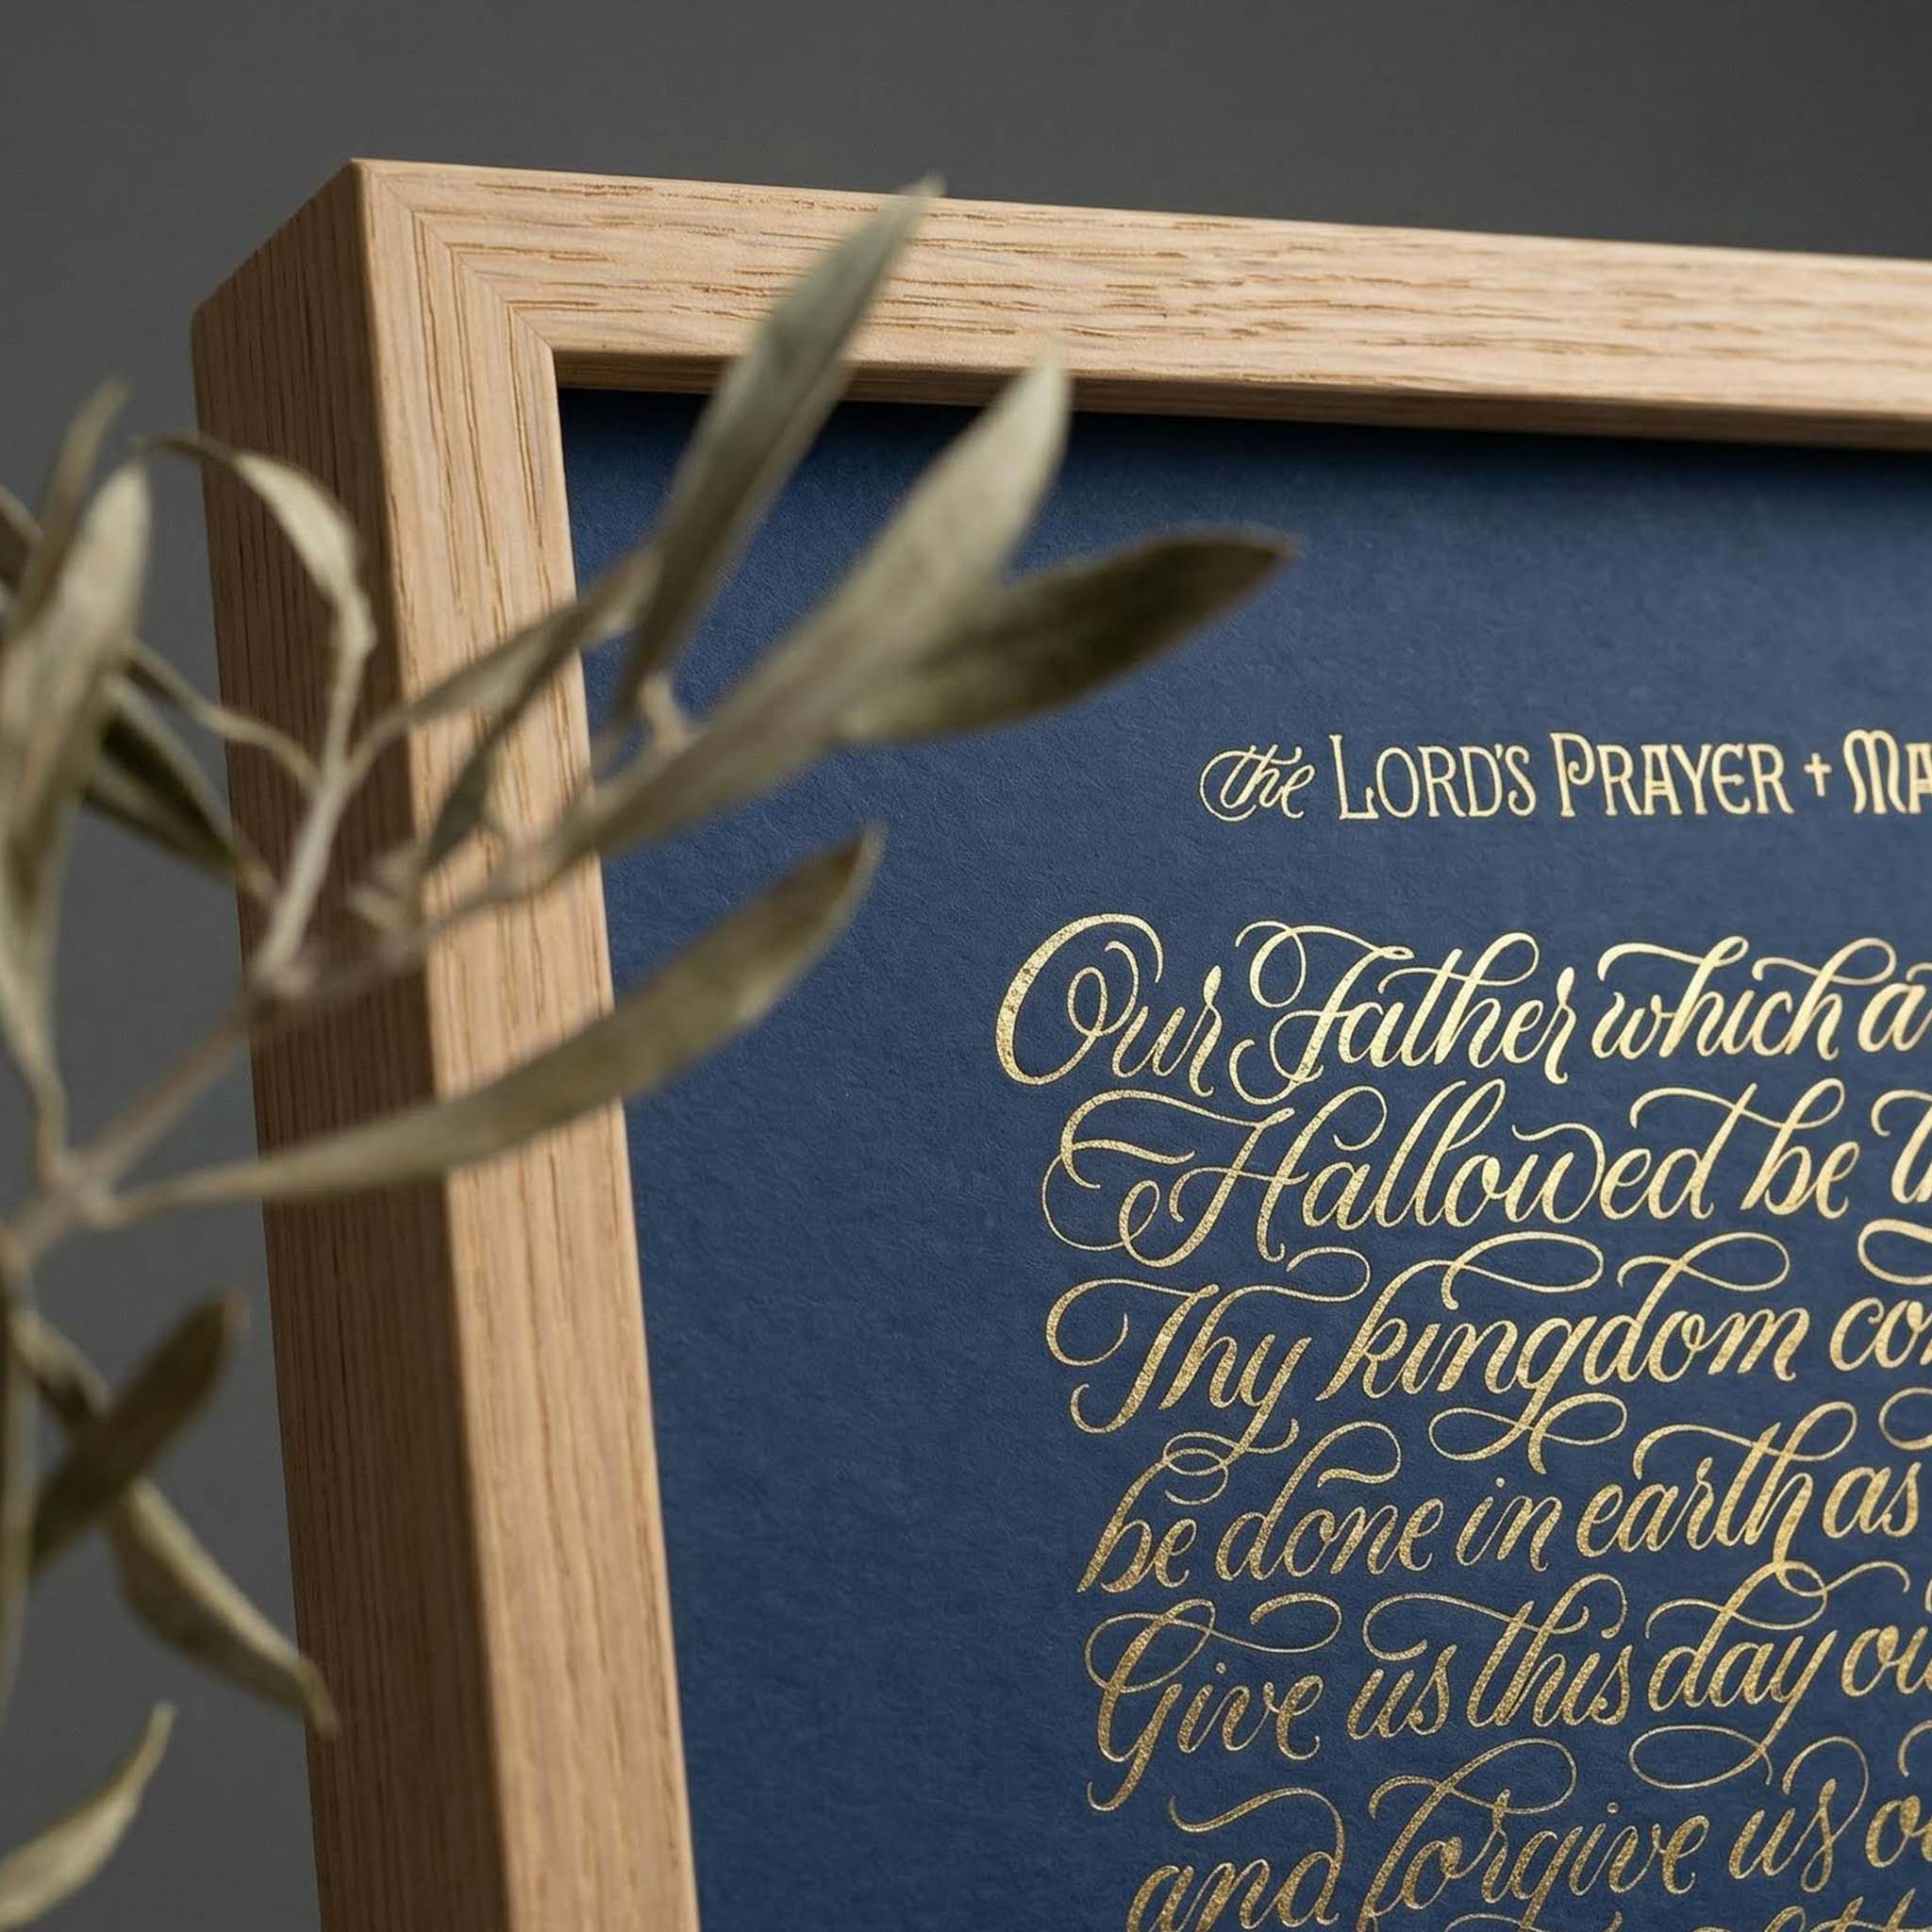 the LORD'S PRAYER + MA
Our Father which a
Hallowed be
Thy kingdom co
be done in earth as
Give us this day ou
and forgive us o